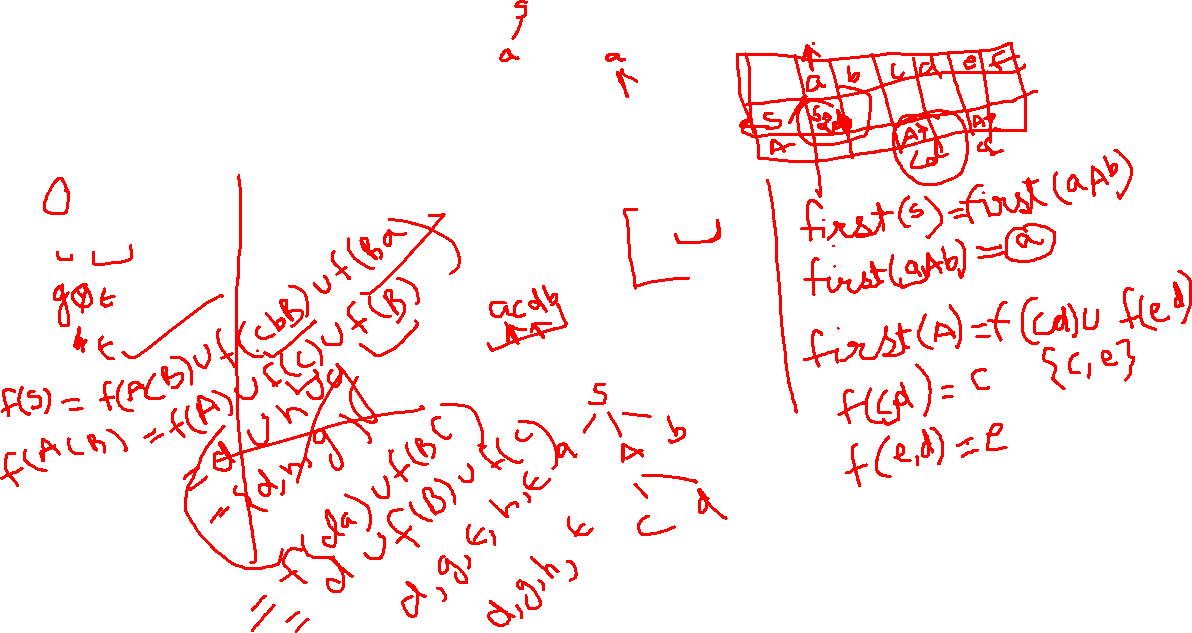 S
a
a
a b c d e f
S
A
first(s)=first(aAb)
first(aAb)=a
first(A)=f(cd)∪ f(ed)
{c,e}
f(cd)=c
f(e,d)=e
g∅ε
ε
f(S)=f(ACB)∪f(CbB)∪f(Ba
f(ACB)=f(A)∪f(C)∪f(B)
= d ∪ h ∪ g
= {d,h,g,
= f(da)∪f(BC)
= d∪f(B)∪f(C)
d,g,ε,h,ε
d,g,h,ε
acdb
S
a A b
c d